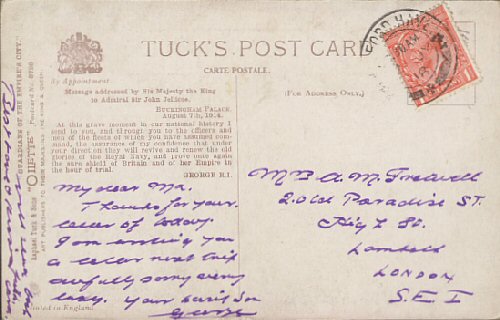 TUCK'S POST CARD
CARTE POSTALE.
By Appointment.
(FOR ADDRESS ONLY.)
Message addressed by His Majesty the King
to Admiral Sir John Jellicoe.
BUCKINGHAM PALACE,
August 7th, 1914.
At this grave moment in our national history I
send to you, and through you to the officers and
men of the fleets of which you have assumed
command, the assurance of my confidence that under
your direction they will revive and renew the old
glories of the Royal Navy, and prove once again
the sure shield of Britain and of her Empire in
the hour of trial.
GEORGE R.I.
My dear Ma.
Thanks for your
letter of today.
I am writing you
a letter next trip
awfully sorry every
lady. Your
George
Printed in England.
"GUARDIANS OF THE EMPIRE'S CITY."
Raphael Tuck & Sons' "OILETTE" Postcard No. 8790
Mrs A. M.
2 Old Paradise St.
High St.
Lambeth
LONDON
S. E. 1